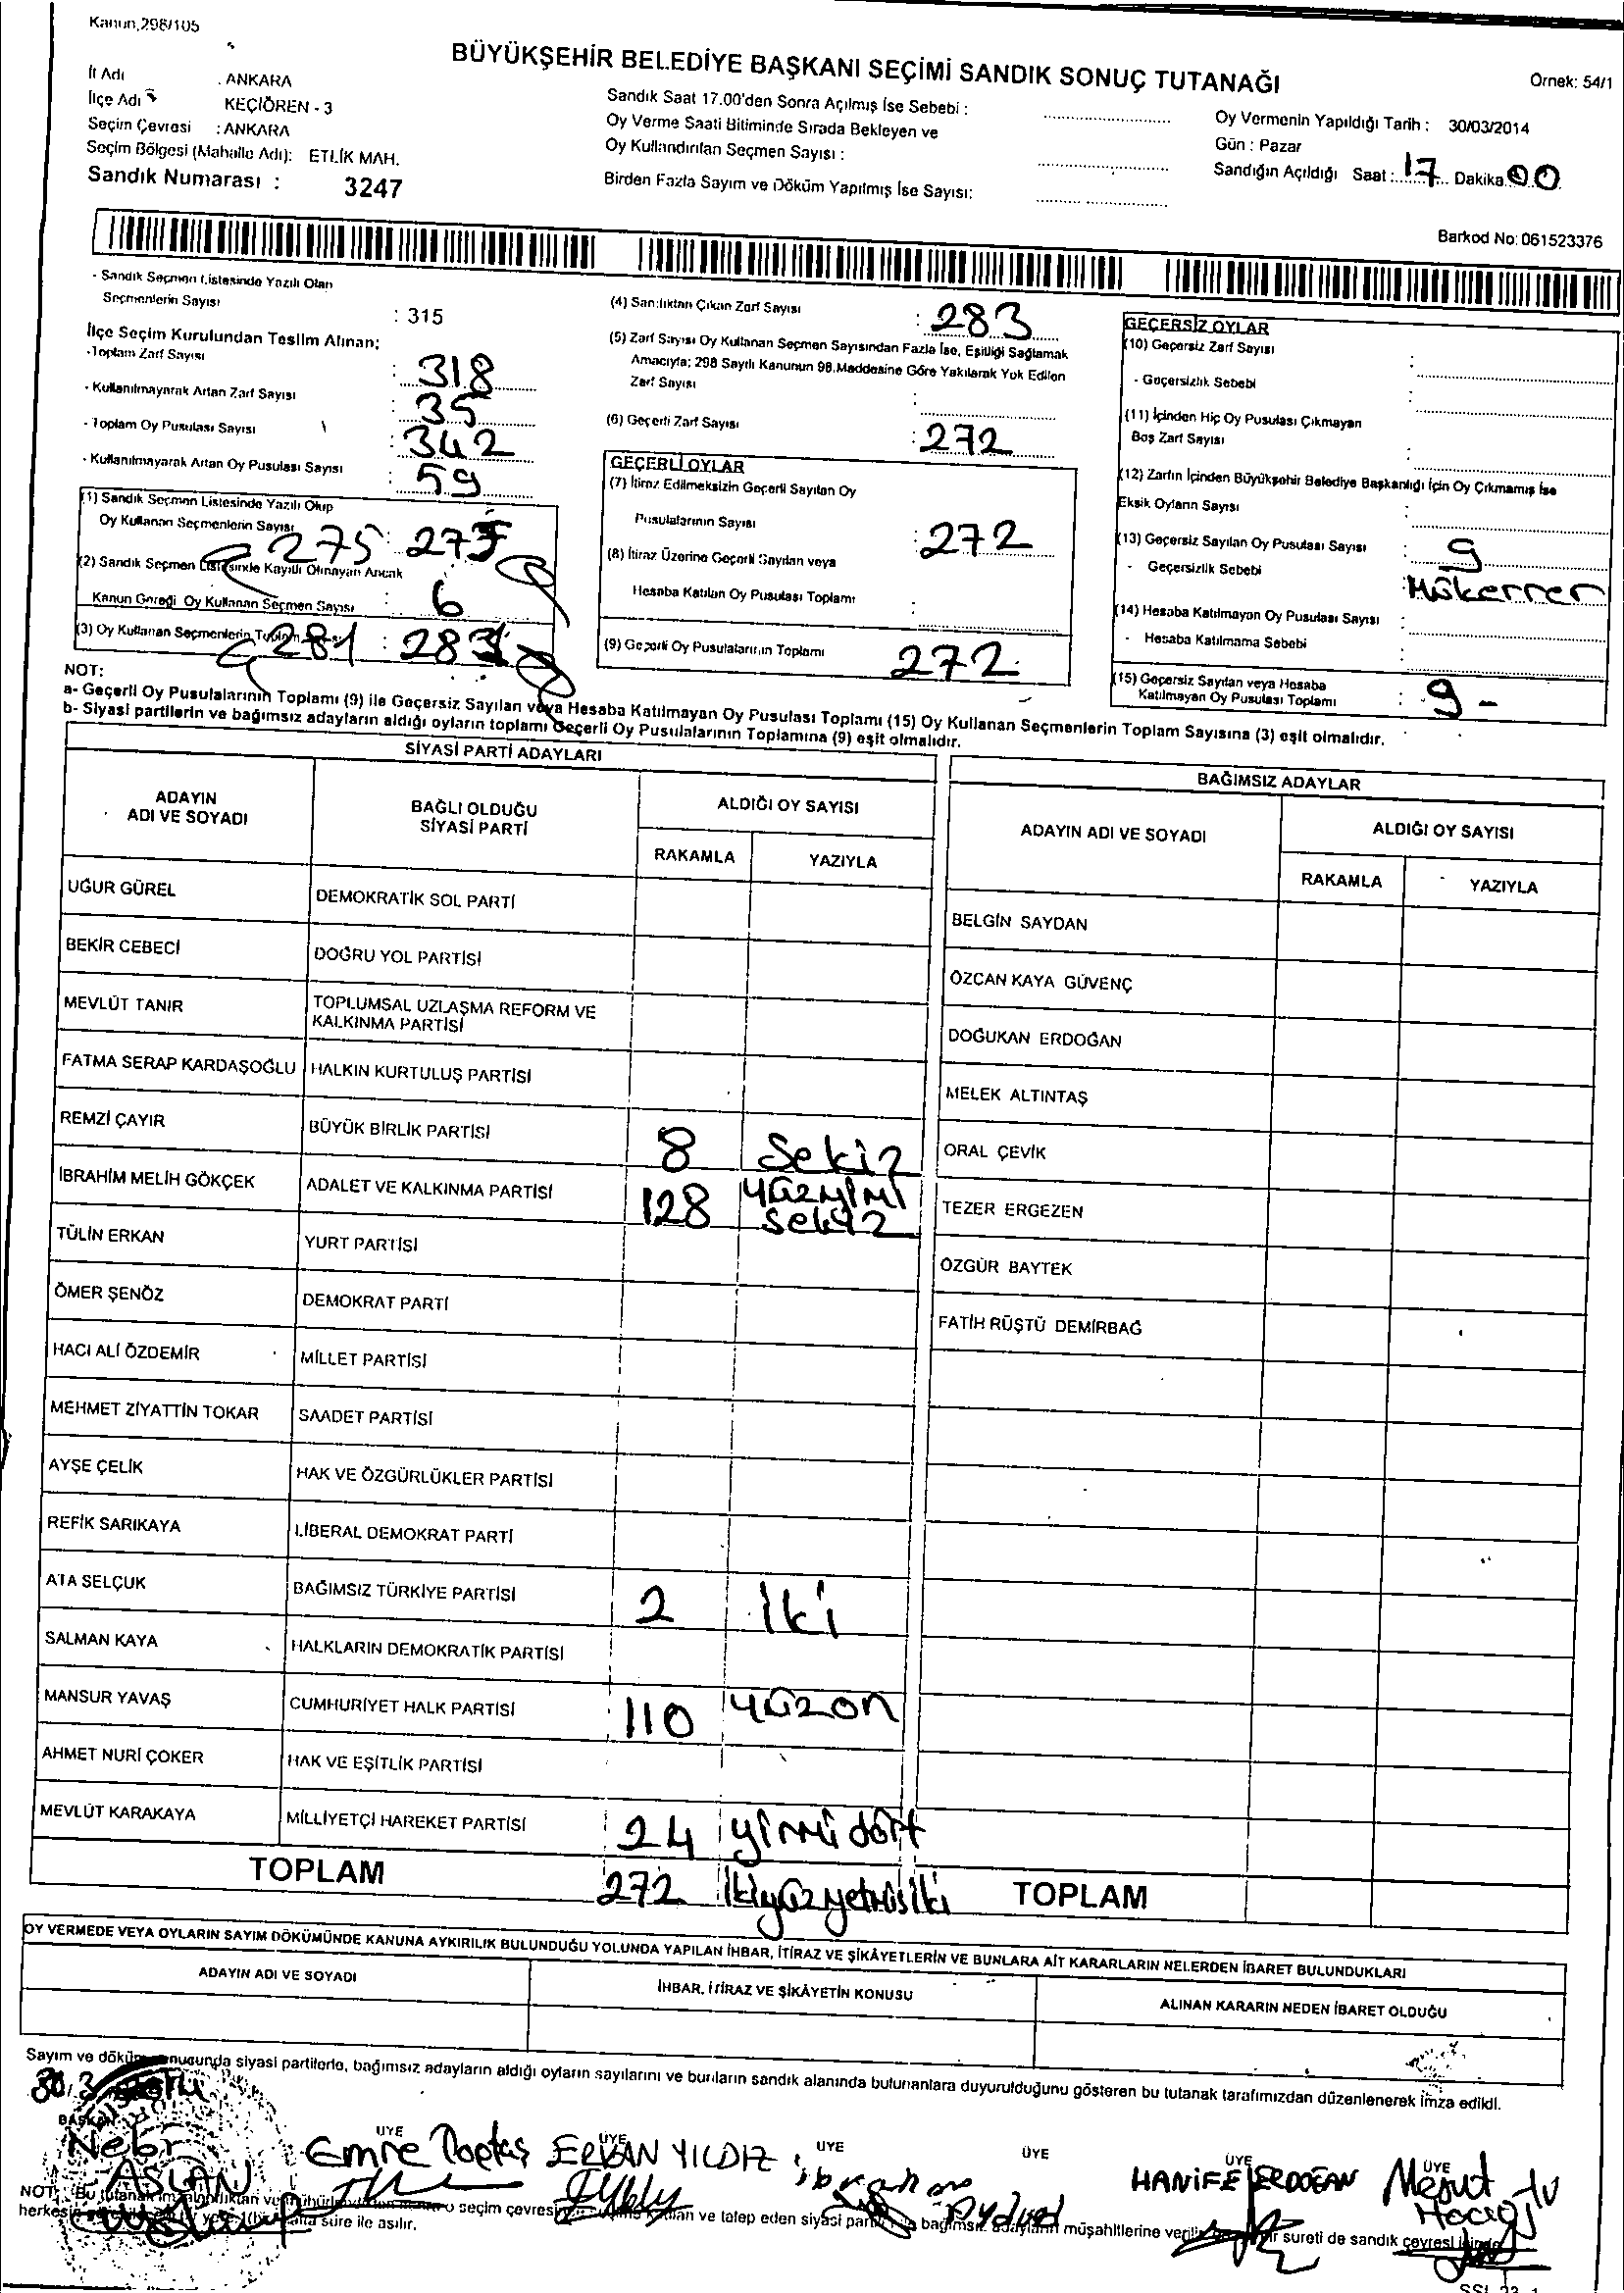 Kanun,298/105
BÜYÜKŞEHİR BELEDİYE BAŞKANI SEÇİMİ SANDIK SONUÇ TUTANAĞI
Örnek: 54/1
İl Adı : ANKARA
İlçe Adı : KEÇİÖREN - 3
Seçim Çevresi : ANKARA
Seçim Bölgesi (Mahalle Adı): ETLİK MAH.
Sandık Numarası : 3247
Sandık Saat 17.00'den Sonra Açılmış İse Sebebi :
Oy Verme Saati Bitiminde Sırada Bekleyen ve
Oy Kullandırılan Seçmen Sayısı :
Birden Fazla Sayım ve Döküm Yapılmış İse Sayısı:
Oy Vermenin Yapıldığı Tarih : 30/03/2014
Gün : Pazar
Sandığın Açıldığı Saat : 17 Dakika 00
Barkod No: 061523376
- Sandık Seçmen Listesinde Yazılı Olan
Seçmenlerin Sayısı : 315
İlçe Seçim Kurulundan Teslim Alınan;
-Toplam Zarf Sayısı : 318
- Kullanılmayarak Artan Zarf Sayısı : 35
- Toplam Oy Pusulası Sayısı : 342
- Kullanılmayarak Artan Oy Pusulası Sayısı : 59
(1) Sandık Seçmen Listesinde Yazılı Olup
Oy Kullanan Seçmenlerin Sayısı 275 : 277
(2) Sandık Seçmen Listesinde Kayıtlı Olmayan Ancak
Kanun Gereği Oy Kullanan Seçmen Sayısı : 6
(3) Oy Kullanan Seçmenlerin Toplam 281 : 283
(4) Sandıktan Çıkan Zarf Sayısı : 283
(5) Zarf Sayısı Oy Kullanan Seçmen Sayısından Fazla İse, Eşitliği Sağlamak
Amacıyla; 298 Sayılı Kanunun 98.Maddesine Göre Yakılarak Yok Edilen
Zarf Sayısı :
(6) Geçerli Zarf Sayısı : 272
GEÇERLİ OYLAR
(7) İtiraz Edilmeksizin Geçerli Sayılan Oy
Pusulalarının Sayısı : 272
(8) İtiraz Üzerine Geçerli Sayılan veya
Hesaba Katılan Oy Pusulası Toplamı :
(9) Geçerli Oy Pusulalarının Toplamı 272
GEÇERSİZ OYLAR
(10) Geçersiz Zarf Sayısı :
- Geçersizlik Sebebi :
(11) İçinden Hiç Oy Pusulası Çıkmayan
Boş Zarf Sayısı :
(12) Zarfın İçinden Büyükşehir Belediye Başkanlığı İçin Oy Çıkmamış İse
Eksik Oyların Sayısı :
(13) Geçersiz Sayılan Oy Pusulası Sayısı : 9
- Geçersizlik Sebebi : Mükerrer
(14) Hesaba Katılmayan Oy Pusulası Sayısı :
- Hesaba Katılmama Sebebi :
(15) Geçersiz Sayılan veya Hesaba
Katılmayan Oy Pusulası Toplamı : 9 -
NOT:
a- Geçerli Oy Pusulalarının Toplamı (9) ile Geçersiz Sayılan veya Hesaba Katılmayan Oy Pusulası Toplamı (15) Oy Kullanan Seçmenlerin Toplam Sayısına (3) eşit olmalıdır.
b- Siyasi partilerin ve bağımsız adayların aldığı oyların toplamı Geçerli Oy Pusulalarının Toplamına (9) eşit olmalıdır.
SİYASİ PARTİ ADAYLARI
ADAYIN ADI VE SOYADI
BAĞLI OLDUĞU SİYASİ PARTİ
ALDIĞI OY SAYISI
RAKAMLA YAZIYLA
UĞUR GÜREL DEMOKRATİK SOL PARTİ
BEKİR CEBECİ DOĞRU YOL PARTİSİ
MEVLÜT TANIR TOPLUMSAL UZLAŞMA REFORM VE
KALKINMA PARTİSİ
FATMA SERAP KARDAŞOĞLU HALKIN KURTULUŞ PARTİSİ
REMZİ ÇAYIR BÜYÜK BİRLİK PARTİSİ 8 Sekiz
İBRAHİM MELİH GÖKÇEK ADALET VE KALKINMA PARTİSİ 128 yüzyimi sekiz
TÜLİN ERKAN YURT PARTİSİ
ÖMER ŞENÖZ DEMOKRAT PARTİ
HACI ALİ ÖZDEMİR MİLLET PARTİSİ
MEHMET ZİYATTİN TOKAR SAADET PARTİSİ
AYŞE ÇELİK HAK VE ÖZGÜRLÜKLER PARTİSİ
REFİK SARIKAYA LİBERAL DEMOKRAT PARTİ
ATA SELÇUK BAĞIMSIZ TÜRKİYE PARTİSİ 2 iki
SALMAN KAYA HALKLARIN DEMOKRATİK PARTİSİ
MANSUR YAVAŞ CUMHURİYET HALK PARTİSİ 110 yüzon
AHMET NURİ ÇOKER HAK VE EŞİTLİK PARTİSİ
MEVLÜT KARAKAYA MİLLİYETÇİ HAREKET PARTİSİ 24 yirmi dört
TOPLAM 272 ikiyüzyetmişiki
BAĞIMSIZ ADAYLAR
ADAYIN ADI VE SOYADI
ALDIĞI OY SAYISI
RAKAMLA YAZIYLA
BELGİN SAYDAN
ÖZCAN KAYA GÜVENÇ
DOĞUKAN ERDOĞAN
MELEK ALTINTAŞ
ORAL ÇEVİK
TEZER ERGEZEN
ÖZGÜR BAYTEK
FATİH RÜŞTÜ DEMİRBAĞ
TOPLAM
OY VERMEDE VEYA OYLARIN SAYIM DÖKÜMÜNDE KANUNA AYKIRILIK BULUNDUĞU YOLUNDA YAPILAN İHBAR, İTİRAZ VE ŞİKÂYETLERİN VE BUNLARA AİT KARARLARIN NELERDEN İBARET BULUNDUKLARI
ADAYIN ADI VE SOYADI
İHBAR, İTİRAZ VE ŞİKÂYETİN KONUSU
ALINAN KARARIN NEDEN İBARET OLDUĞU
Sayım ve döküm sonucunda siyasi partilerle, bağımsız adayların aldığı oyların sayılarını ve bunların sandık alanında bulunanlara duyurulduğunu gösteren bu tutanak tarafımızdan düzenlenerek imza edildi.
BAŞKAN ÜYE ÜYE ÜYE ÜYE ÜYE ÜYE
ASLAN
Emre Toptaş
ERKAN YILDIZ
ibrahim
HANİFE ERDOĞAN
Mesut
NOT:
seçim çevresi
ve talep eden siyasi parti
müşahitlerine
sureti de sandık çevresi
süre ile asılır.